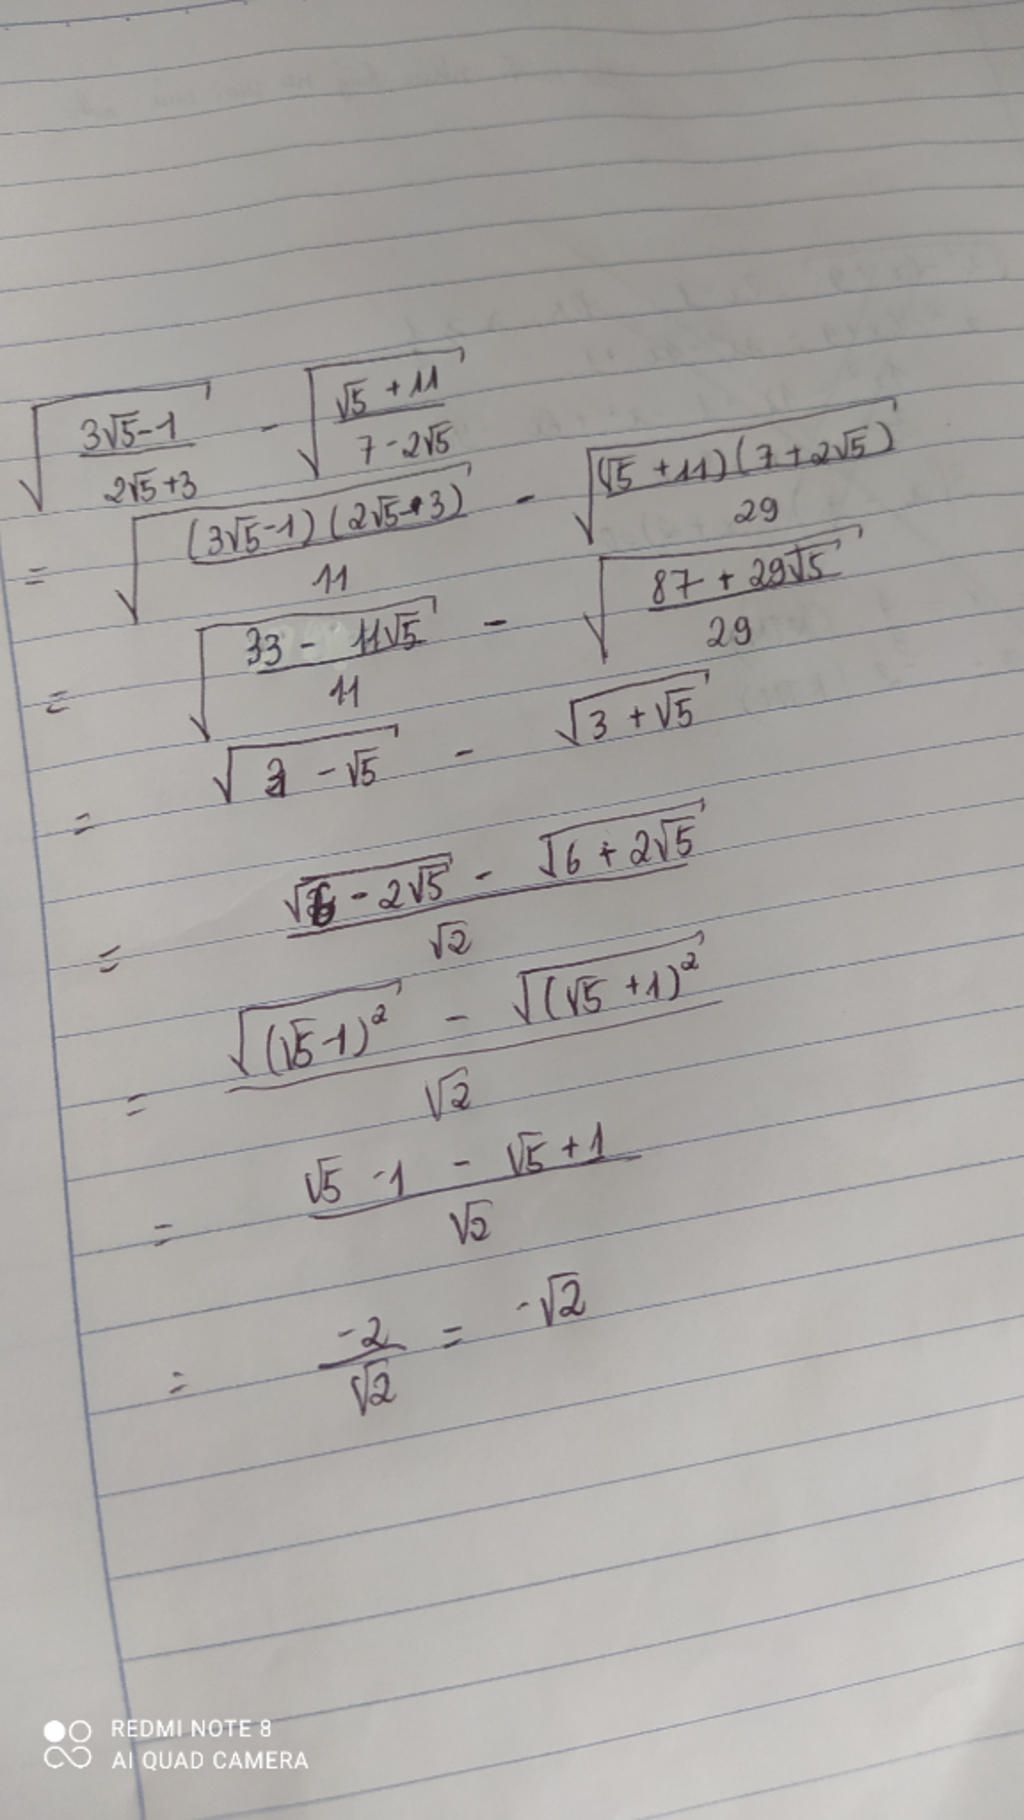 √((3√5-1)/(2√5+3)) - √((√5+11)/(7-2√5))
= √((3√5-1)(2√5-3)/11) - √((√5+11)(7+2√5)/29)
= √((33-11√5)/11) - √((87+29√5)/29)
= √(3-√5) - √(3+√5)
= (√(6-2√5) - √(6+2√5))/√2
= (√((√5-1)²) - √((√5+1)²))/√2
= (√5-1 - √5+1)/√2
= -2/√2 = -√2
REDMI NOTE 8
AI QUAD CAMERA